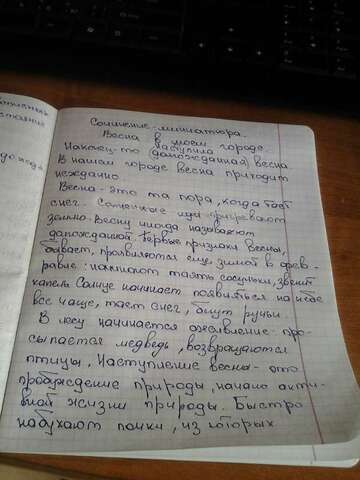 Сочинение-миниатюра.
Весна в моём городе.
Наконец-то наступила (долгожданная) весна.
В нашем городе весна приходит
нежданно.
Весна - это та пора, когда тает
снег. Солнечные лучи пригревают
землю. Весну иногда называют
долгожданной. Первые признаки весны,
бывает, проявляются ещё зимой в фев-
рале: начинают таять сосульки, звенит
капель. Солнце начинает появляться на небе
всё чаще, тает снег, бегут ручьи.
В лесу начинается оживление: про-
сыпается медведь, возвращаются
птицы. Наступление весны - это
пробуждение природы, начало акти-
вной жизни природы. Быстро
набухают почки, из которых